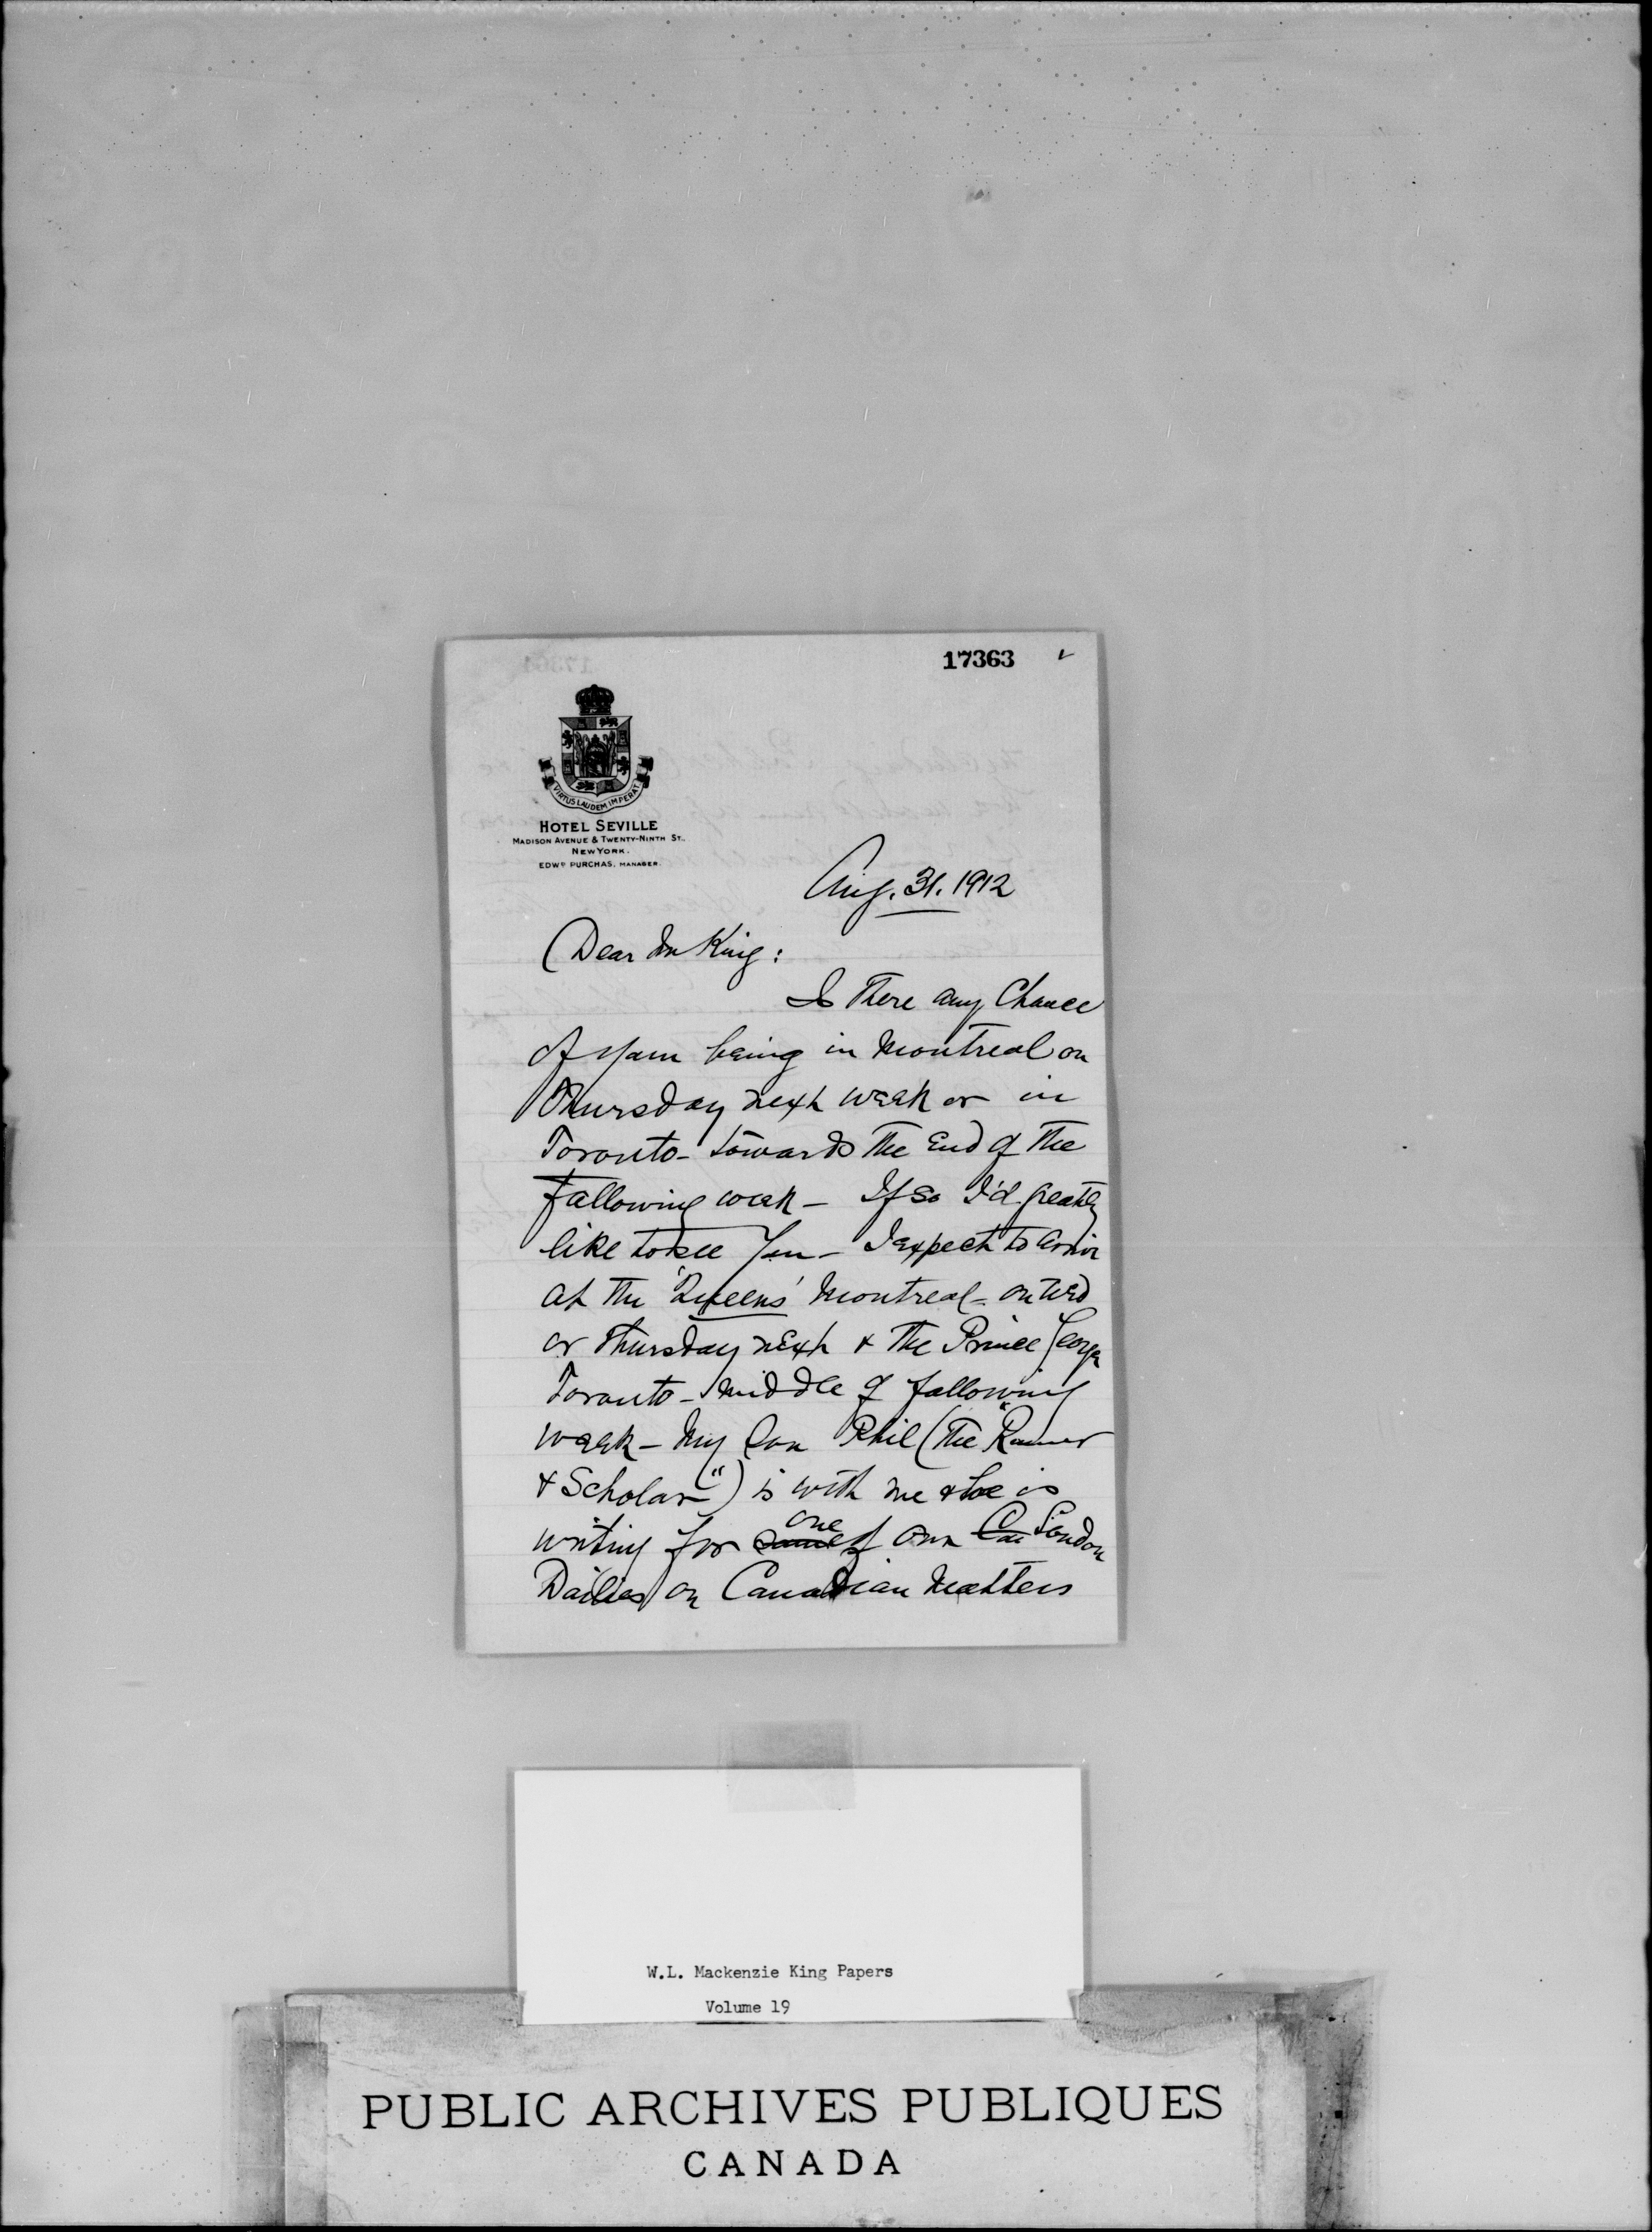 17363
VIRTUS LAUDEM IMPERAT
HOTEL SEVILLE
MADISON AVENUE & TWENTY-NINTH ST.
NEW YORK.
EDWD PURCHAS. MANAGER.
Aug. 31. 1912
Dear Mr King:
Is there any Chance
of your being in Montreal on
Thursday next week or in
Toronto - towards the End of the
following week - If so I'd greatly
like to see you - I expect to arrive
at the 'Queens' Montreal - on Wed
or Thursday next & the Prince George
Toronto - middle of following
week - My son Phil (The "Runner
& Scholar") is with me & he is
writing for some one of our Can London
Dailies on Canadian Matters
W.L. Mackenzie King Papers
Volume 19
PUBLIC ARCHIVES PUBLIQUES
CANADA